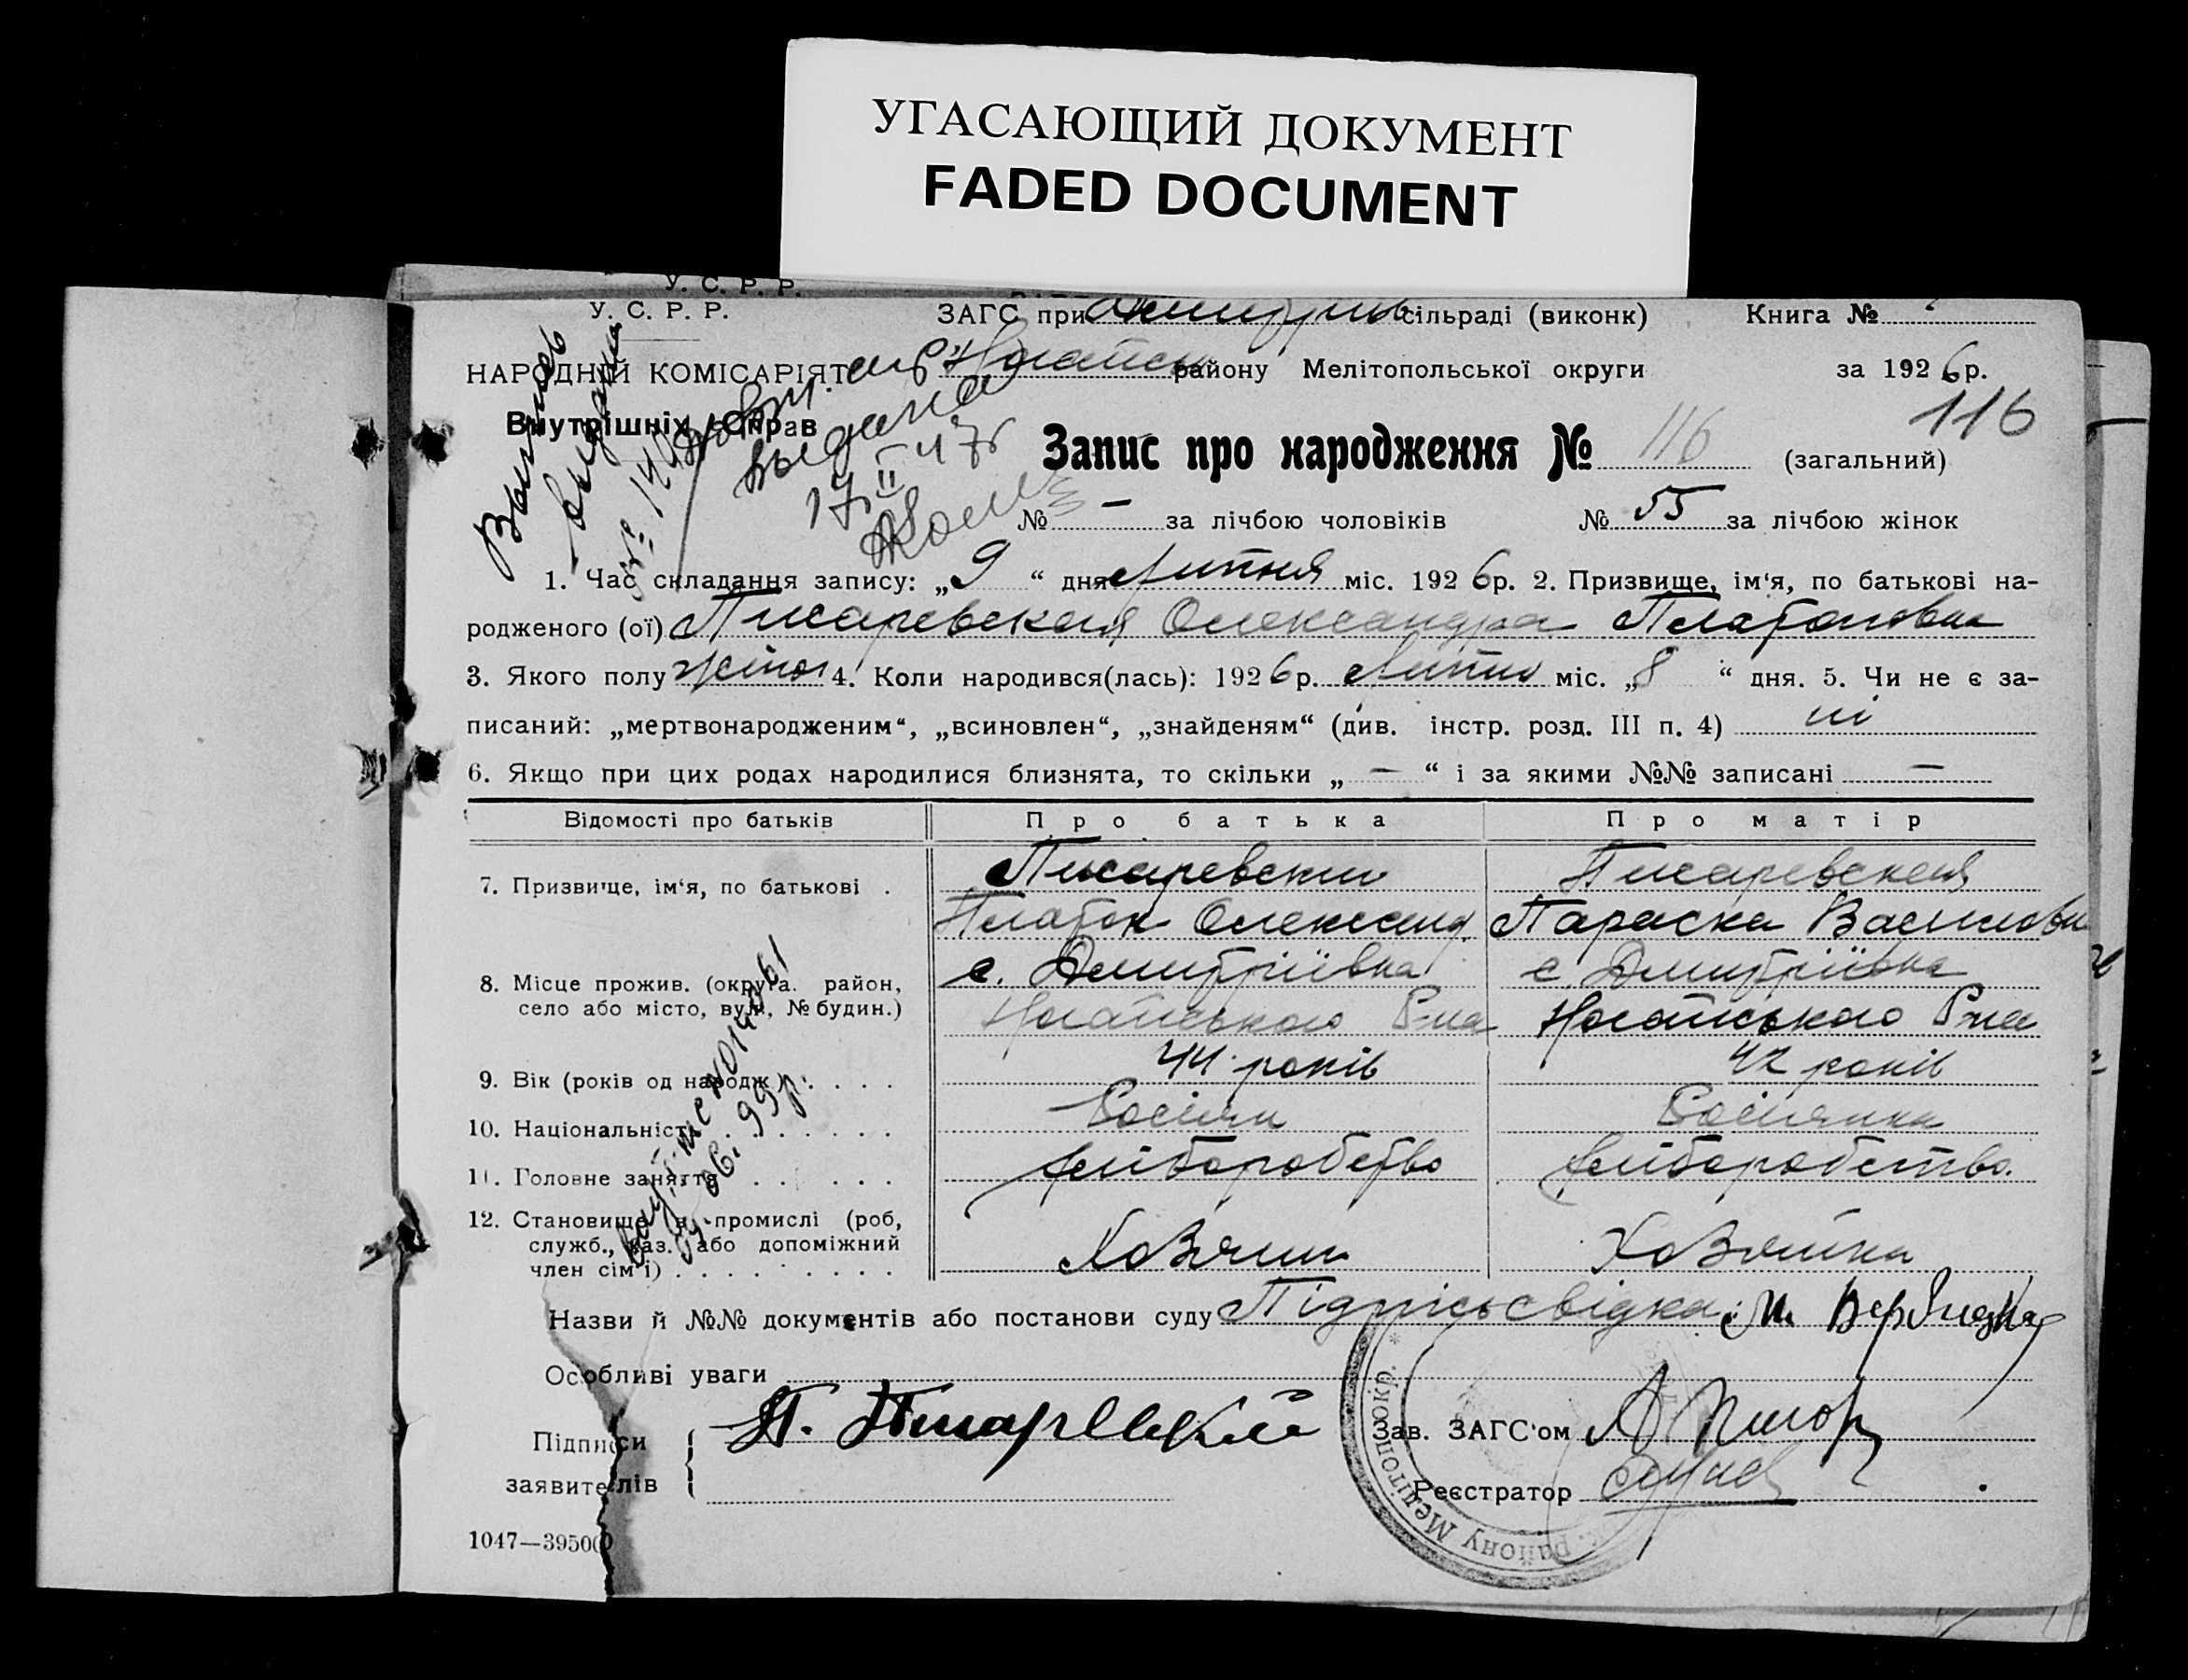 УГАСАЮЩИЙ ДОКУМЕНТ
FADED DOCUMENT
У. С. Р. Р.
У. С. Р. Р.
ЗАГС при Дмитрів сільраді (виконк) Книга №
НАРОДНІЙ КОМІСАРІЯТ
Ногайськ району Мелітопольської округи за 1926 р.
Внутрішніх Справ
116
Запис про народження № 116 (загальний)
выдана
17/II 47г
№ — за лічбою чоловіків № 55 за лічбою жінок
1. Час складання запису: „9“ дня Липня міс. 1926р. 2. Призвище, ім‘я, по батькові на-
родженого (ої) Писаревская Олександра Платоновна
3. Якого полу жіноч 4. Коли народився(лась): 1926р. Липня міс. „8“ дня. 5. Чи не є за-
писаний: „мертвонародженим“, „всиновлен“, „знайденям“ (див. інстр. розд. III п. 4) ні
6. Якщо при цих родах народилися близнята, то скільки „—“ і за якими №№ записані —
Відомості про батьків Про батька Про матір
7. Призвище, ім‘я, по батькові . Писаревский Писаревская
Платон Олександ. Параска Василовн
8. Місце прожив. (округа. район, с. Дмитріївка с. Дмитріївка
село або місто, вул., № будин.) Ногайського Р-на Ногайського Р-на
9. Вік (років од народж.) . . . . 44 років 42 років
10. Національність . . . . . . Росіян Росіянка
11. Головне заняття . . . . . хліборобство хліборобство.
12. Становище в промислі (роб, служб., каз. або допоміжний член сім‘ї) . . . . . . . . . Хозяин Хозяйка
Назви й №№ документів або постанови суду Підпись свідка: М.
Особливі уваги
Підписи П. Писаревский Зав. ЗАГС‘ом
заявителів Реєстратор
району Мелітопокр.
1047—39500